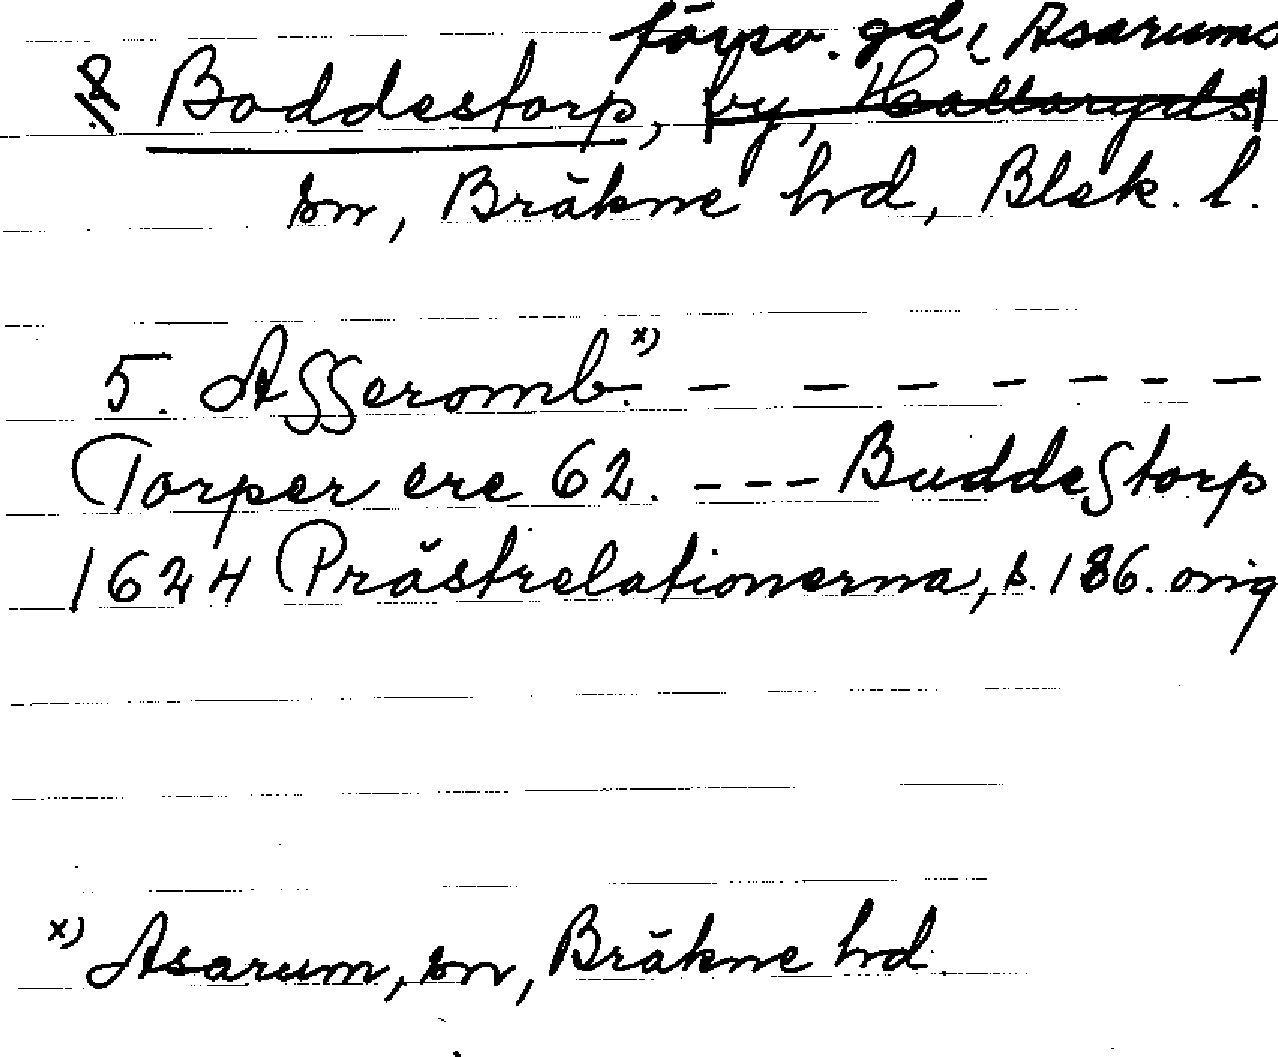 försv. gd i Asarums
Boddestorp, by, Hallaryds
sn, Bräkne hd, Blek. l.
5. Asseromb. x) - - - - - - -
Torper ere 62. --- Buddestorp
1624 Prästrelationerna, s. 186. orig
x) Asarum, sn, Bräkne hd.